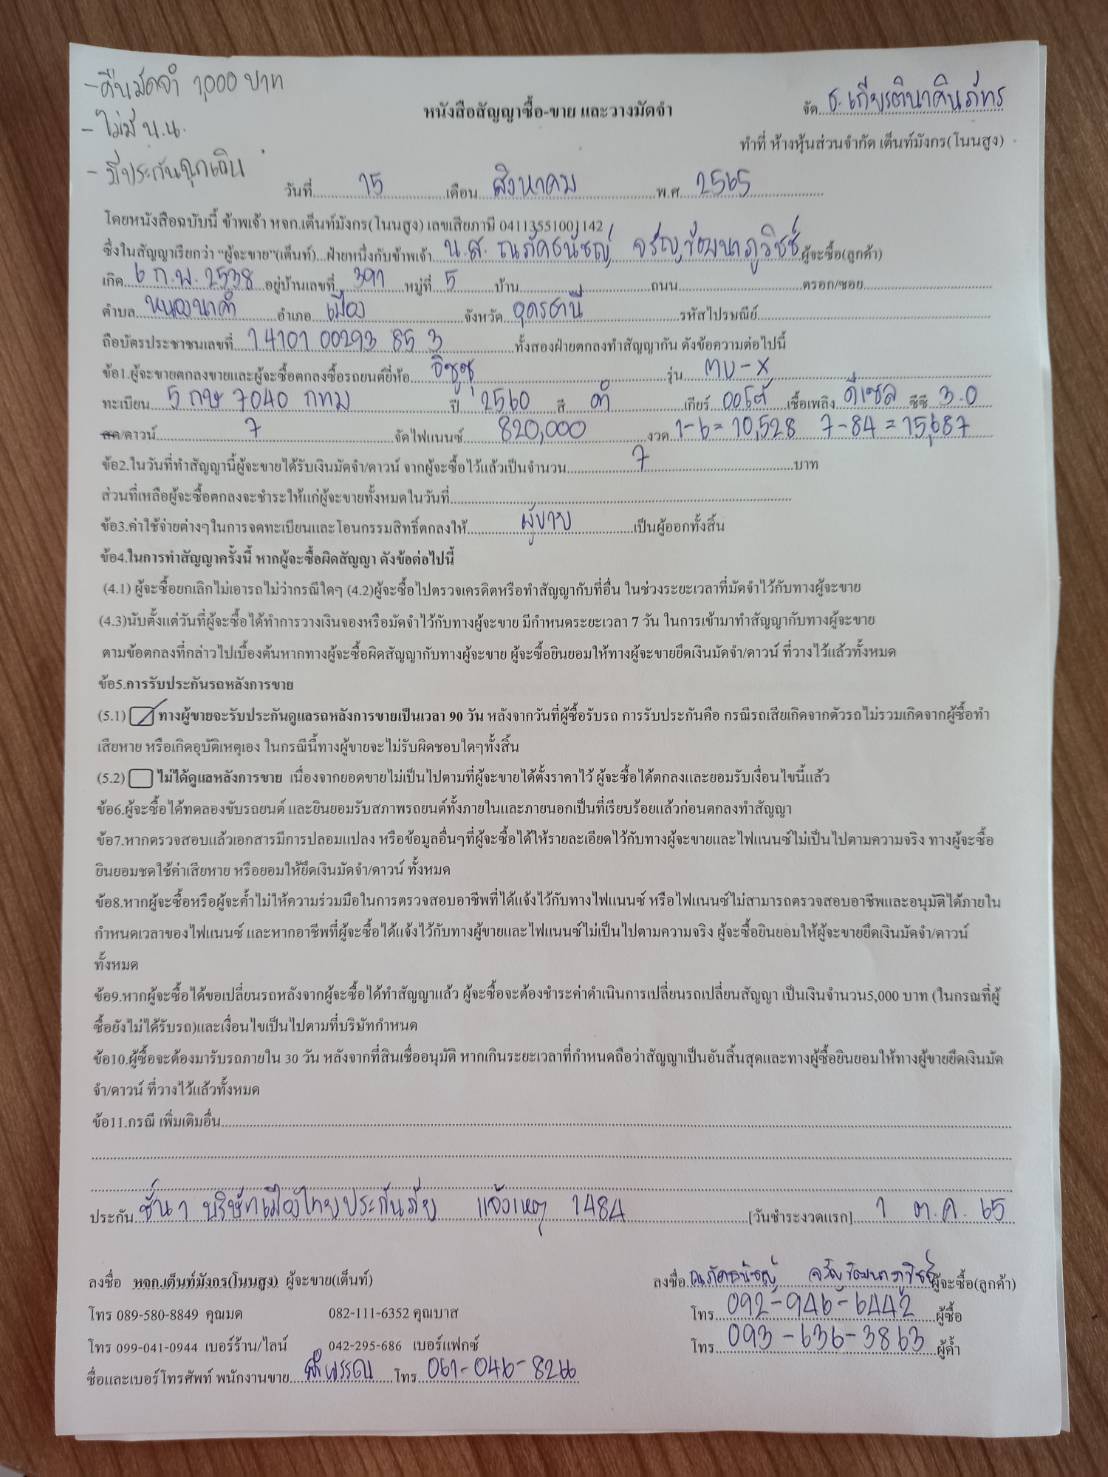 - คืนมัดจำ 1,000 บาท
- ไม่มี น.น.
- มีประกันฉุกเฉิน
จัด ธ. เกียรตินาคินภัทร
หนังสือสัญญาซื้อ-ขาย และวางมัดจำ
ทำที่ ห้างหุ้นส่วนจำกัด เต็นท์มังกร(โนนสูง)
วันที่ 15 เดือน สิงหาคม พ.ศ 2565
โดยหนังสือฉบับนี้ ข้าพเจ้า หจก.เต็นท์มังกร(โนนสูง) เลขเสียภาษี 0411355100 1142
ซึ่งในสัญญาเรียกว่า "ผู้จะขาย"(เต็นท์)...ฝ่ายหนึ่งกับข้าพเจ้า น.ส. ณภัคธนัชญ์ จรัญวัฒนาภูวิชช์ ผู้จะซื้อ(ลูกค้า)
เกิด 6 ก.พ. 2538 อยู่บ้านเลขที่ 391 หมู่ที่ 5 บ้าน ถนน ตรอก/ซอย
ตำบล หนองนาคำ อำเภอ เมือง จังหวัด อุดรธานี รหัสไปรษณีย์
ถือบัตรประชาชนเลขที่ 1 4101 00293 85 3 ทั้งสองฝ่ายตกลงทำสัญญากัน ดังข้อความต่อไปนี้
ข้อ1.ผู้จะขายตกลงขายและผู้จะซื้อตกลงซื้อรถยนต์ยี่ห้อ อีซูซุ รุ่น MU-X
ทะเบียน 5 กษ 7040 กทม ปี 2560 สี ดำ เกียร์ ออโต้ เชื้อเพลิง ดีเซล ซีซี 3.0
สด/ดาวน์ 7 จัดไฟแนนซ์ 820,000 งวด 1-6 = 10,528 7-84 = 15,687
ข้อ2.ในวันที่ทำสัญญานี้ผู้จะขายได้รับเงินมัดจำ/ดาวน์ จากผู้จะซื้อไว้แล้วเป็นจำนวน 7 บาท
ส่วนที่เหลือผู้จะซื้อตกลงจะชำระให้แก่ผู้จะขายทั้งหมดในวันที่
ข้อ3.ค่าใช้จ่ายต่างๆในการจดทะเบียนและโอนกรรมสิทธิ์ตกลงให้ ผู้ขาย เป็นผู้ออกทั้งสิ้น
ข้อ4.ในการทำสัญญาครั้งนี้ หากผู้จะซื้อผิดสัญญา ดังข้อต่อไปนี้
(4.1) ผู้จะซื้อยกเลิกไม่เอารถไม่ว่ากรณีใดๆ (4.2)ผู้จะซื้อไปตรวจเครดิตหรือทำสัญญากับที่อื่น ในช่วงระยะเวลาที่มัดจำไว้กับทางผู้จะขาย
(4.3)นับตั้งแต่วันที่ผู้จะซื้อได้ทำการวางเงินจองหรือมัดจำไว้กับทางผู้จะขาย มีกำหนดระยะเวลา 7 วัน ในการเข้ามาทำสัญญากับทางผู้จะขาย
ตามข้อตกลงที่กล่าวไปเบื้องต้นหากทางผู้จะซื้อผิดสัญญากับทางผู้จะขาย ผู้จะซื้อยินยอมให้ทางผู้จะขายยึดเงินมัดจำ/ดาวน์ ที่วางไว้แล้วทั้งหมด
ข้อ5.การรับประกันรถหลังการขาย
(5.1) ทางผู้ขายจะรับประกันดูแลรถหลังการขายเป็นเวลา 90 วัน หลังจากวันที่ผู้ซื้อรับรถ การรับประกันคือ กรณีรถเสียเกิดจากตัวรถ ไม่รวมเกิดจากผู้ซื้อทำ
เสียหาย หรือเกิดอุบัติเหตุเอง ในกรณีนี้ทางผู้ขายจะไม่รับผิดชอบใดๆทั้งสิ้น
(5.2) ไม่ได้ดูแลหลังการขาย เนื่องจากยอดขายไม่เป็นไปตามที่ผู้จะขายได้ตั้งราคาไว้ ผู้จะซื้อได้ตกลงและยอมรับเงื่อนไขนี้แล้ว
ข้อ6.ผู้จะซื้อได้ทดลองขับรถยนต์ และยินยอมรับสภาพรถยนต์ทั้งภายในและภายนอกเป็นที่เรียบร้อยแล้วก่อนตกลงทำสัญญา
ข้อ7.หากตรวจสอบแล้วเอกสารมีการปลอมแปลง หรือข้อมูลอื่นๆที่ผู้จะซื้อได้ให้รายละเอียดไว้กับทางผู้จะขายและไฟแนนซ์ไม่เป็นไปตามความจริง ทางผู้จะซื้อ
ยินยอมชดใช้ค่าเสียหาย หรือยอมให้ยึดเงินมัดจำ/ดาวน์ ทั้งหมด
ข้อ8.หากผู้จะซื้อหรือผู้จะค้ำไม่ให้ความร่วมมือในการตรวจสอบอาชีพที่ได้แจ้งไว้กับทางไฟแนนซ์ หรือไฟแนนซ์ไม่สามารถตรวจสอบอาชีพและอนุมัติได้ภายใน
กำหนดเวลาของไฟแนนซ์ และหากอาชีพที่ผู้จะซื้อได้แจ้งไว้กับทางผู้ขายและไฟแนนซ์ไม่เป็นไปตามความจริง ผู้จะซื้อยินยอมให้ผู้จะขายยึดเงินมัดจำ/ดาวน์
ทั้งหมด
ข้อ9.หากผู้จะซื้อได้ขอเปลี่ยนรถหลังจากผู้จะซื้อได้ทำสัญญาแล้ว ผู้จะซื้อจะต้องชำระค่าดำเนินการเปลี่ยนรถเปลี่ยนสัญญา เป็นเงินจำนวน5,000 บาท (ในกรณที่ผู้
ซื้อยังไม่ได้รับรถ)และเงื่อนไขเป็นไปตามที่บริษัทกำหนด
ข้อ10.ผู้ซื้อจะต้องมารับรถภายใน 30 วัน หลังจากที่สินเชื่ออนุมัติ หากเกินระยะเวลาที่กำหนดถือว่าสัญญาเป็นอันสิ้นสุดและทางผู้ซื้อยินยอมให้ทางผู้ขายยึดเงินมัด
จำ/ดาวน์ ที่วางไว้แล้วทั้งหมด
ข้อ11.กรณี เพิ่มเติมอื่น
ประกัน ชั้น 1 บริษัทเมืองไทยประกันภัย แจ้งเหตุ 1484 [วันชำระงวดแรก] 1 ต.ค. 65
ลงชื่อ หจก.เต็นท์มังกร(โนนสูง) ผู้จะขาย(เต็นท์) ลงชื่อ ณภัคธนัชญ์ จรัญวัฒนาภูวิชช์ ผู้จะซื้อ(ลูกค้า)
โทร 089-580-8849 คุณมด 082-111-6352 คุณบาส โทร 092-946-6442 ผู้ซื้อ
โทร 099-041-0944 เบอร์ร้าน/ไลน์ 042-295-686 เบอร์แฟกซ์ โทร 093-636-3863 ผู้ค้ำ
ชื่อและเบอร์โทรศัพท์ พนักงานขาย โทร 061-046-8266